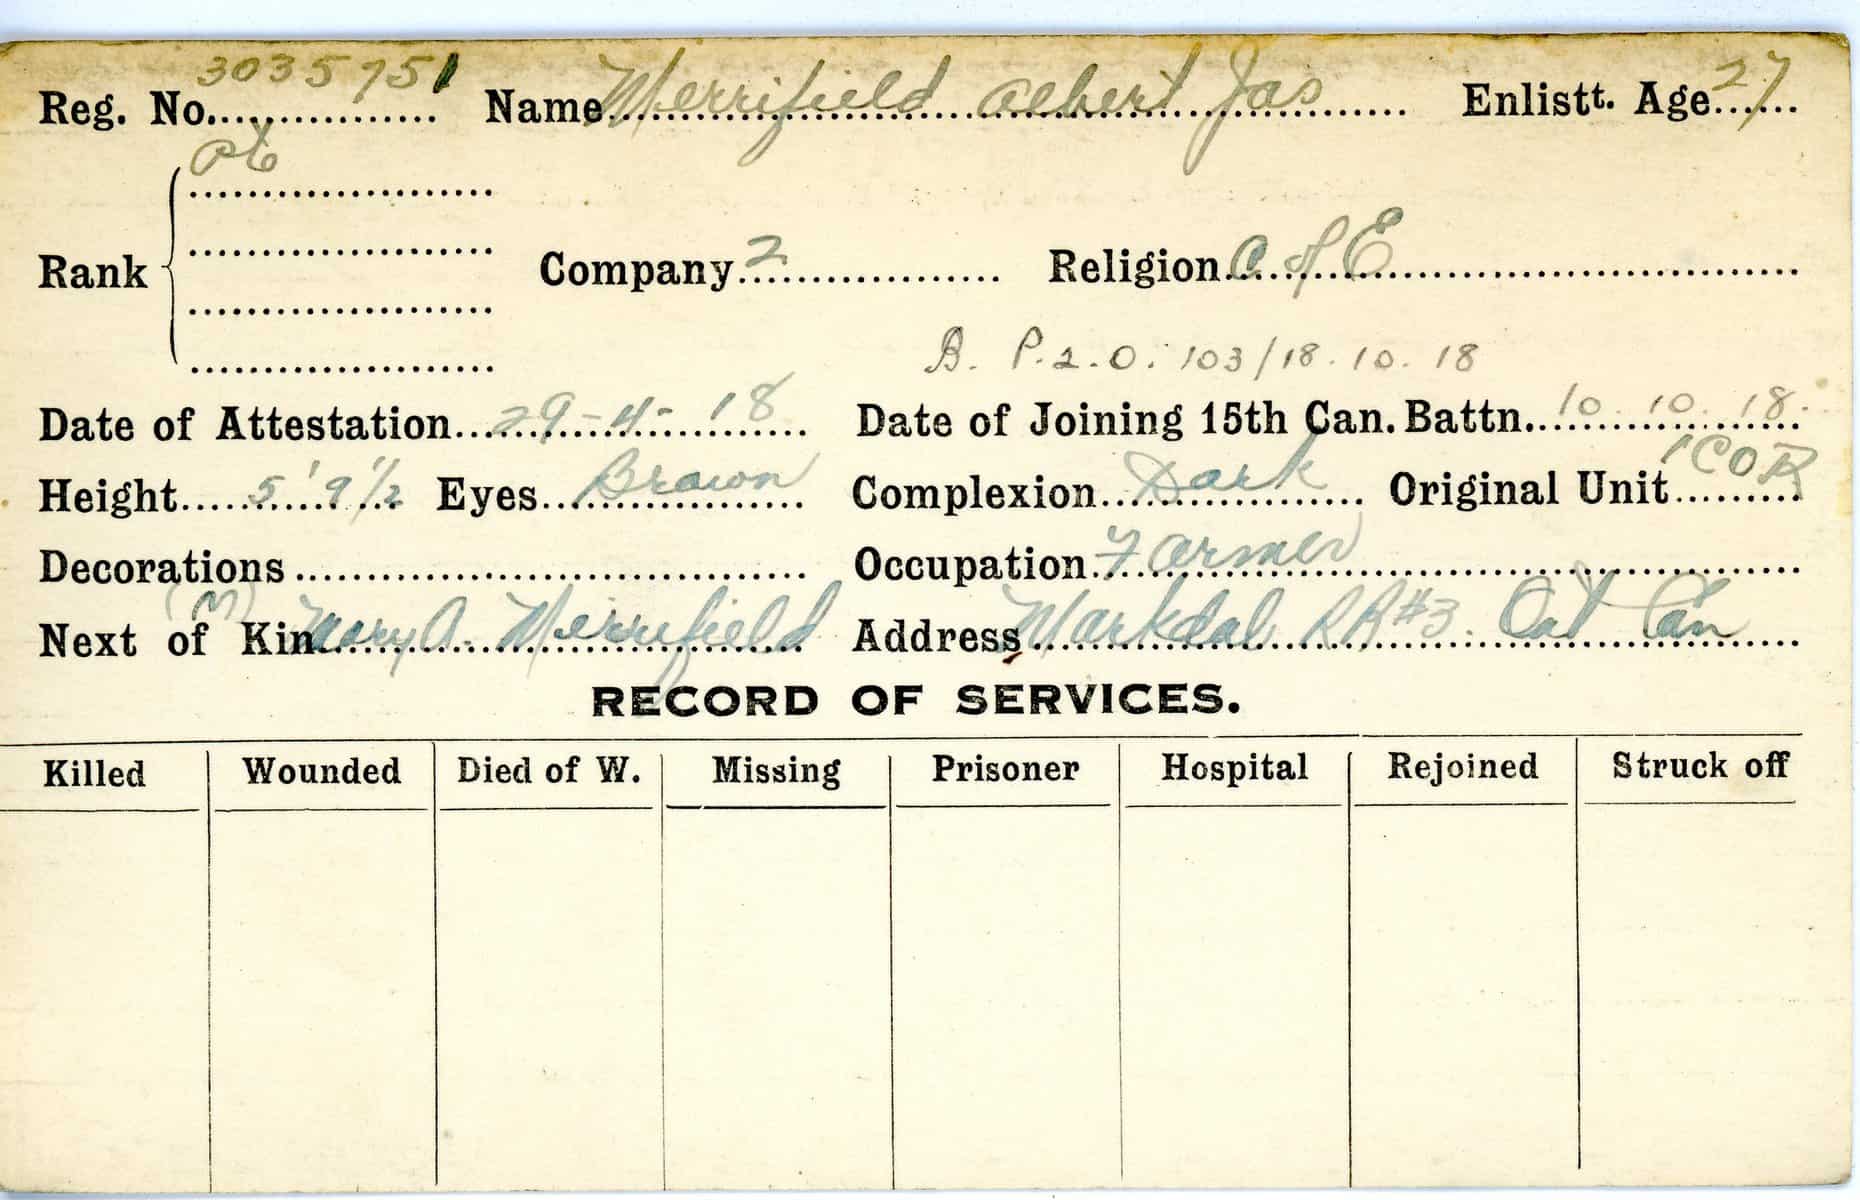 Reg. No. 3035751 Name Merrifield Albert Jas Enlistt. Age 27
Pte
Rank Company 2 Religion C of E
B. P.2.O. 103/18.10.18
Date of Attestation 29-4-18 Date of Joining 15th Can. Battn. 10.10.18.
Height 5'9½ Eyes Brown Complexion Dark Original Unit 1 COR
Decorations Occupation Farmer
(M)
Next of Kin Mary A. Merrifield Address Markdal RR#3. Ont Can
RECORD OF SERVICES.
Killed Wounded Died of W. Missing Prisoner Hospital Rejoined Struck off